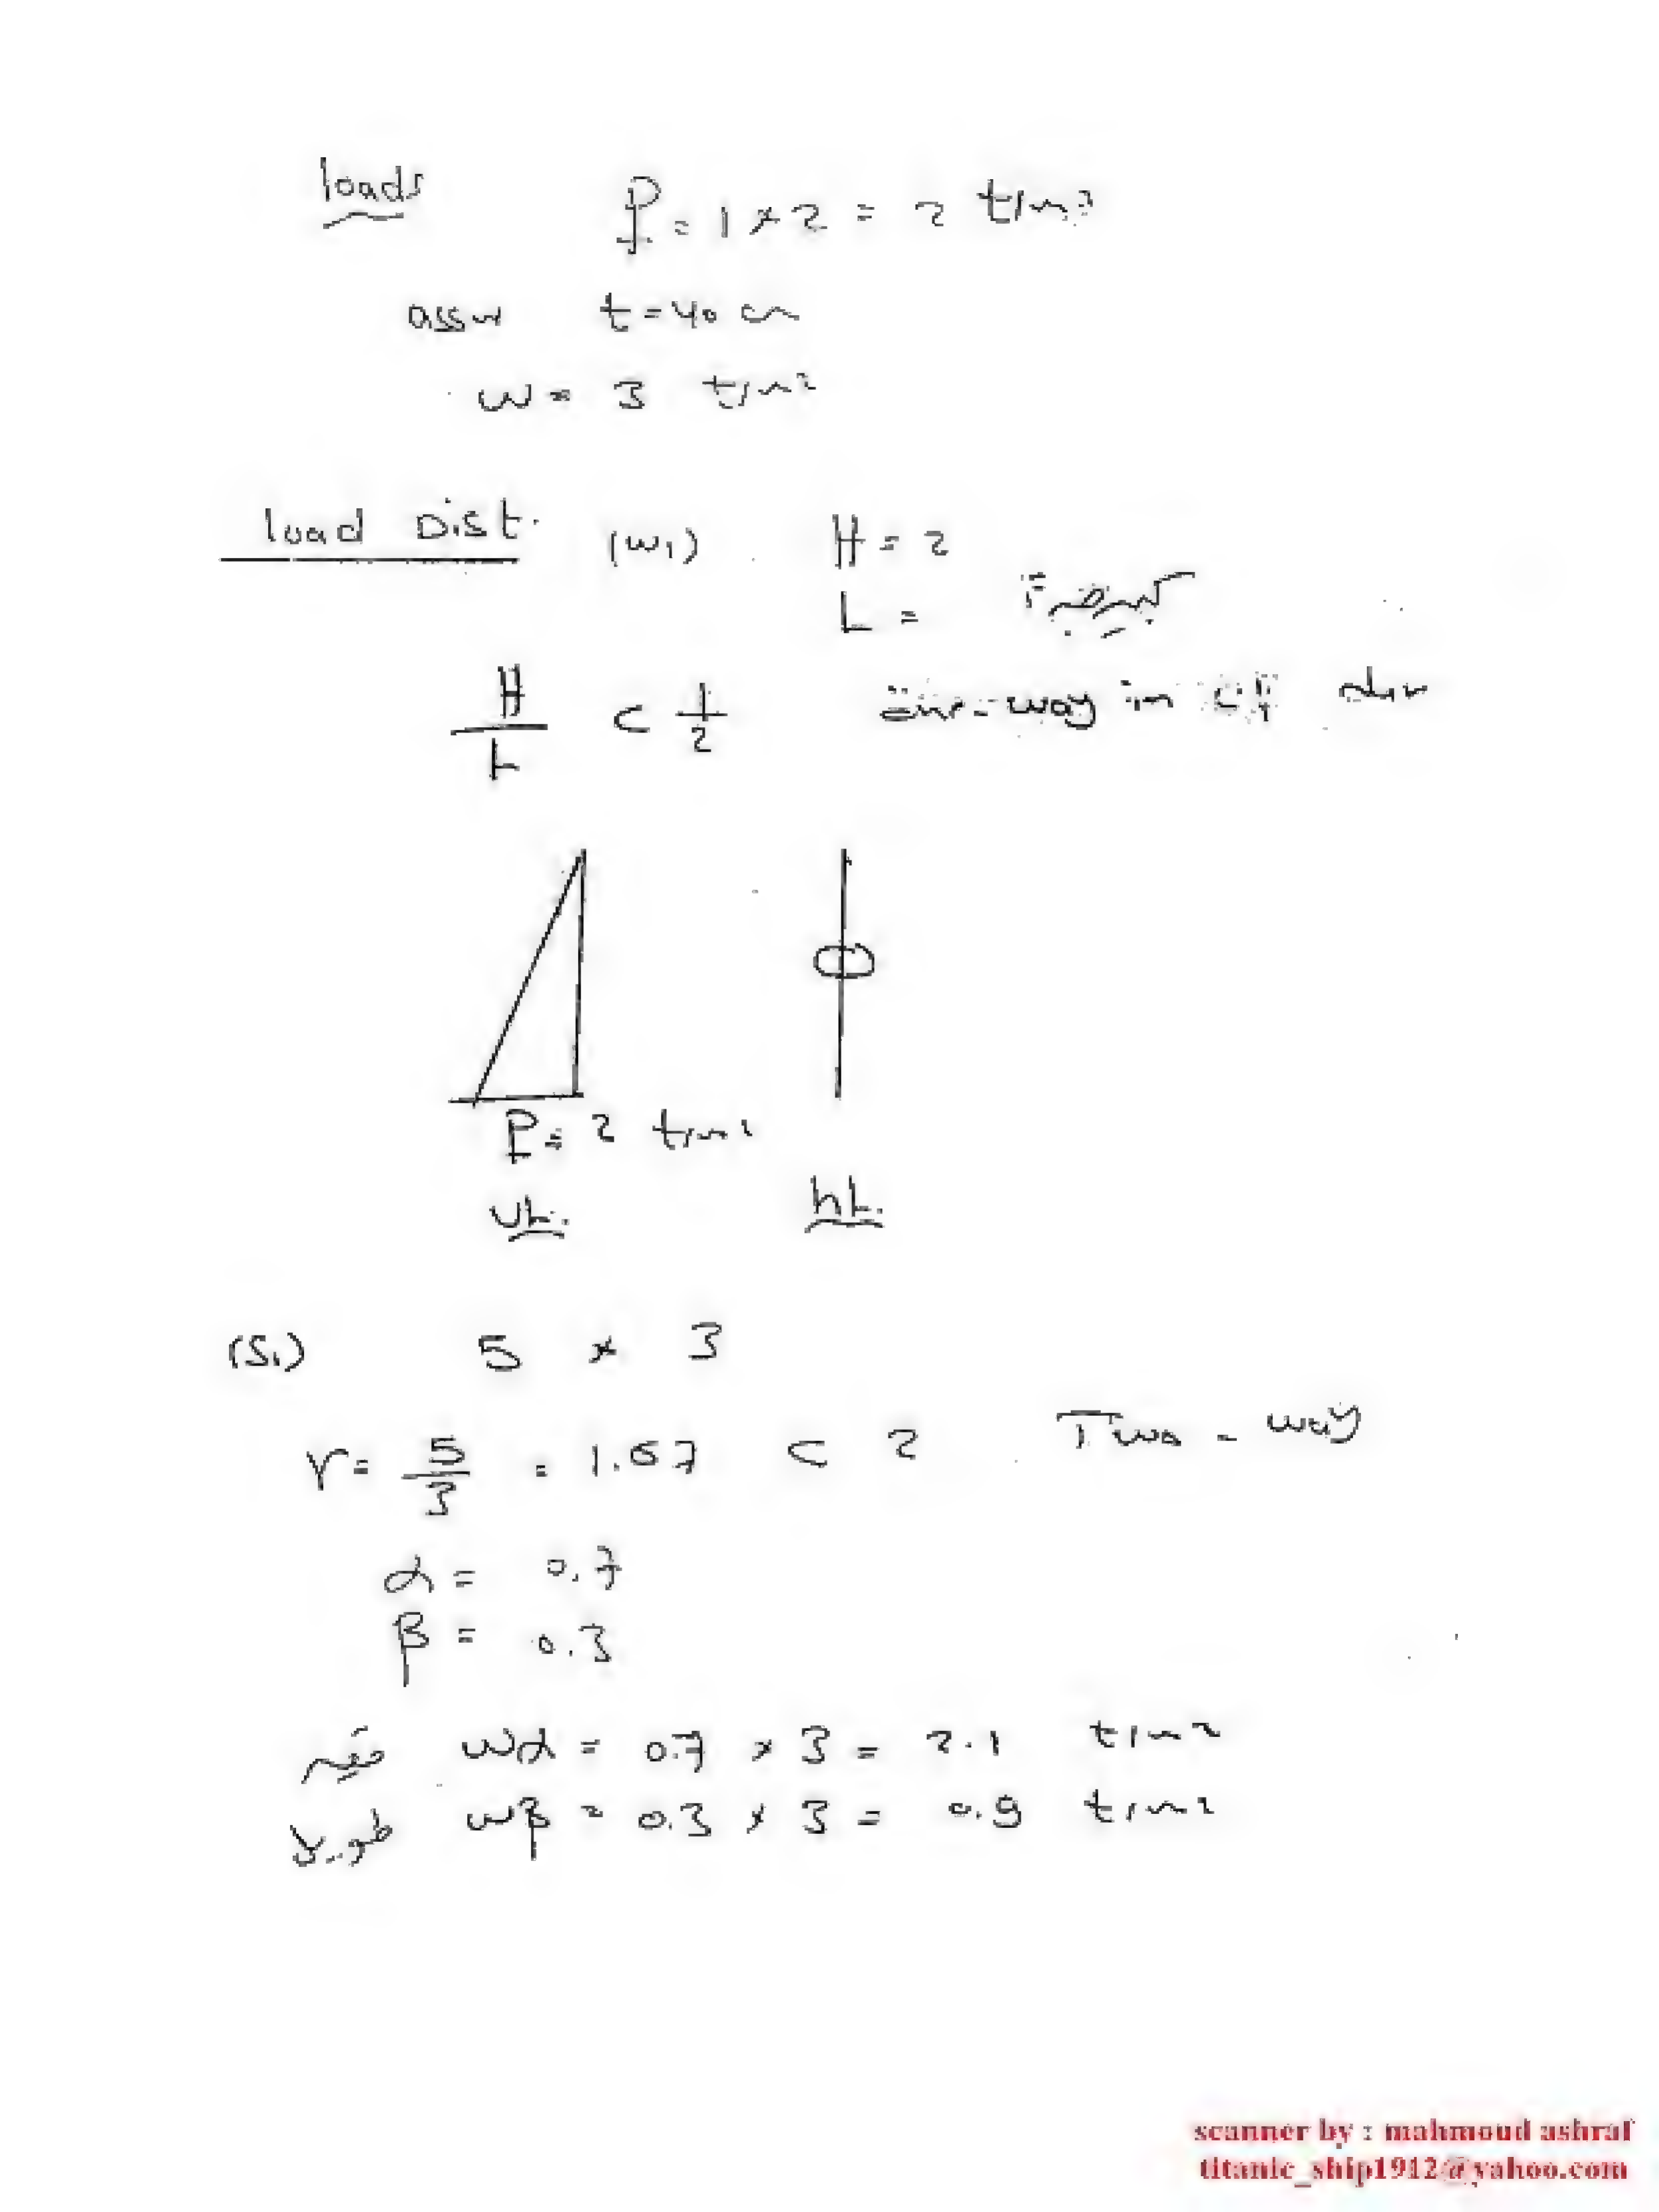 loads
P = 1 * 2 = 2 t/m2
assu t = 40 cm
w = 3 t/m2
load Dist. (w1) H = 2
L = كبيرة
H/L < 1/2 one-way in dir
P = 2 t/m2
VL. hL.
(S1) 5 * 3
r = 5/3 = 1.67 < 2 Two-way
α = 0.7
β = 0.3
wα = 0.7 * 3 = 2.1 t/m2
طويل wβ = 0.3 * 3 = 0.9 t/m2
scanner by : mahmoud ashraf
titanic_ship1912@yahoo.com